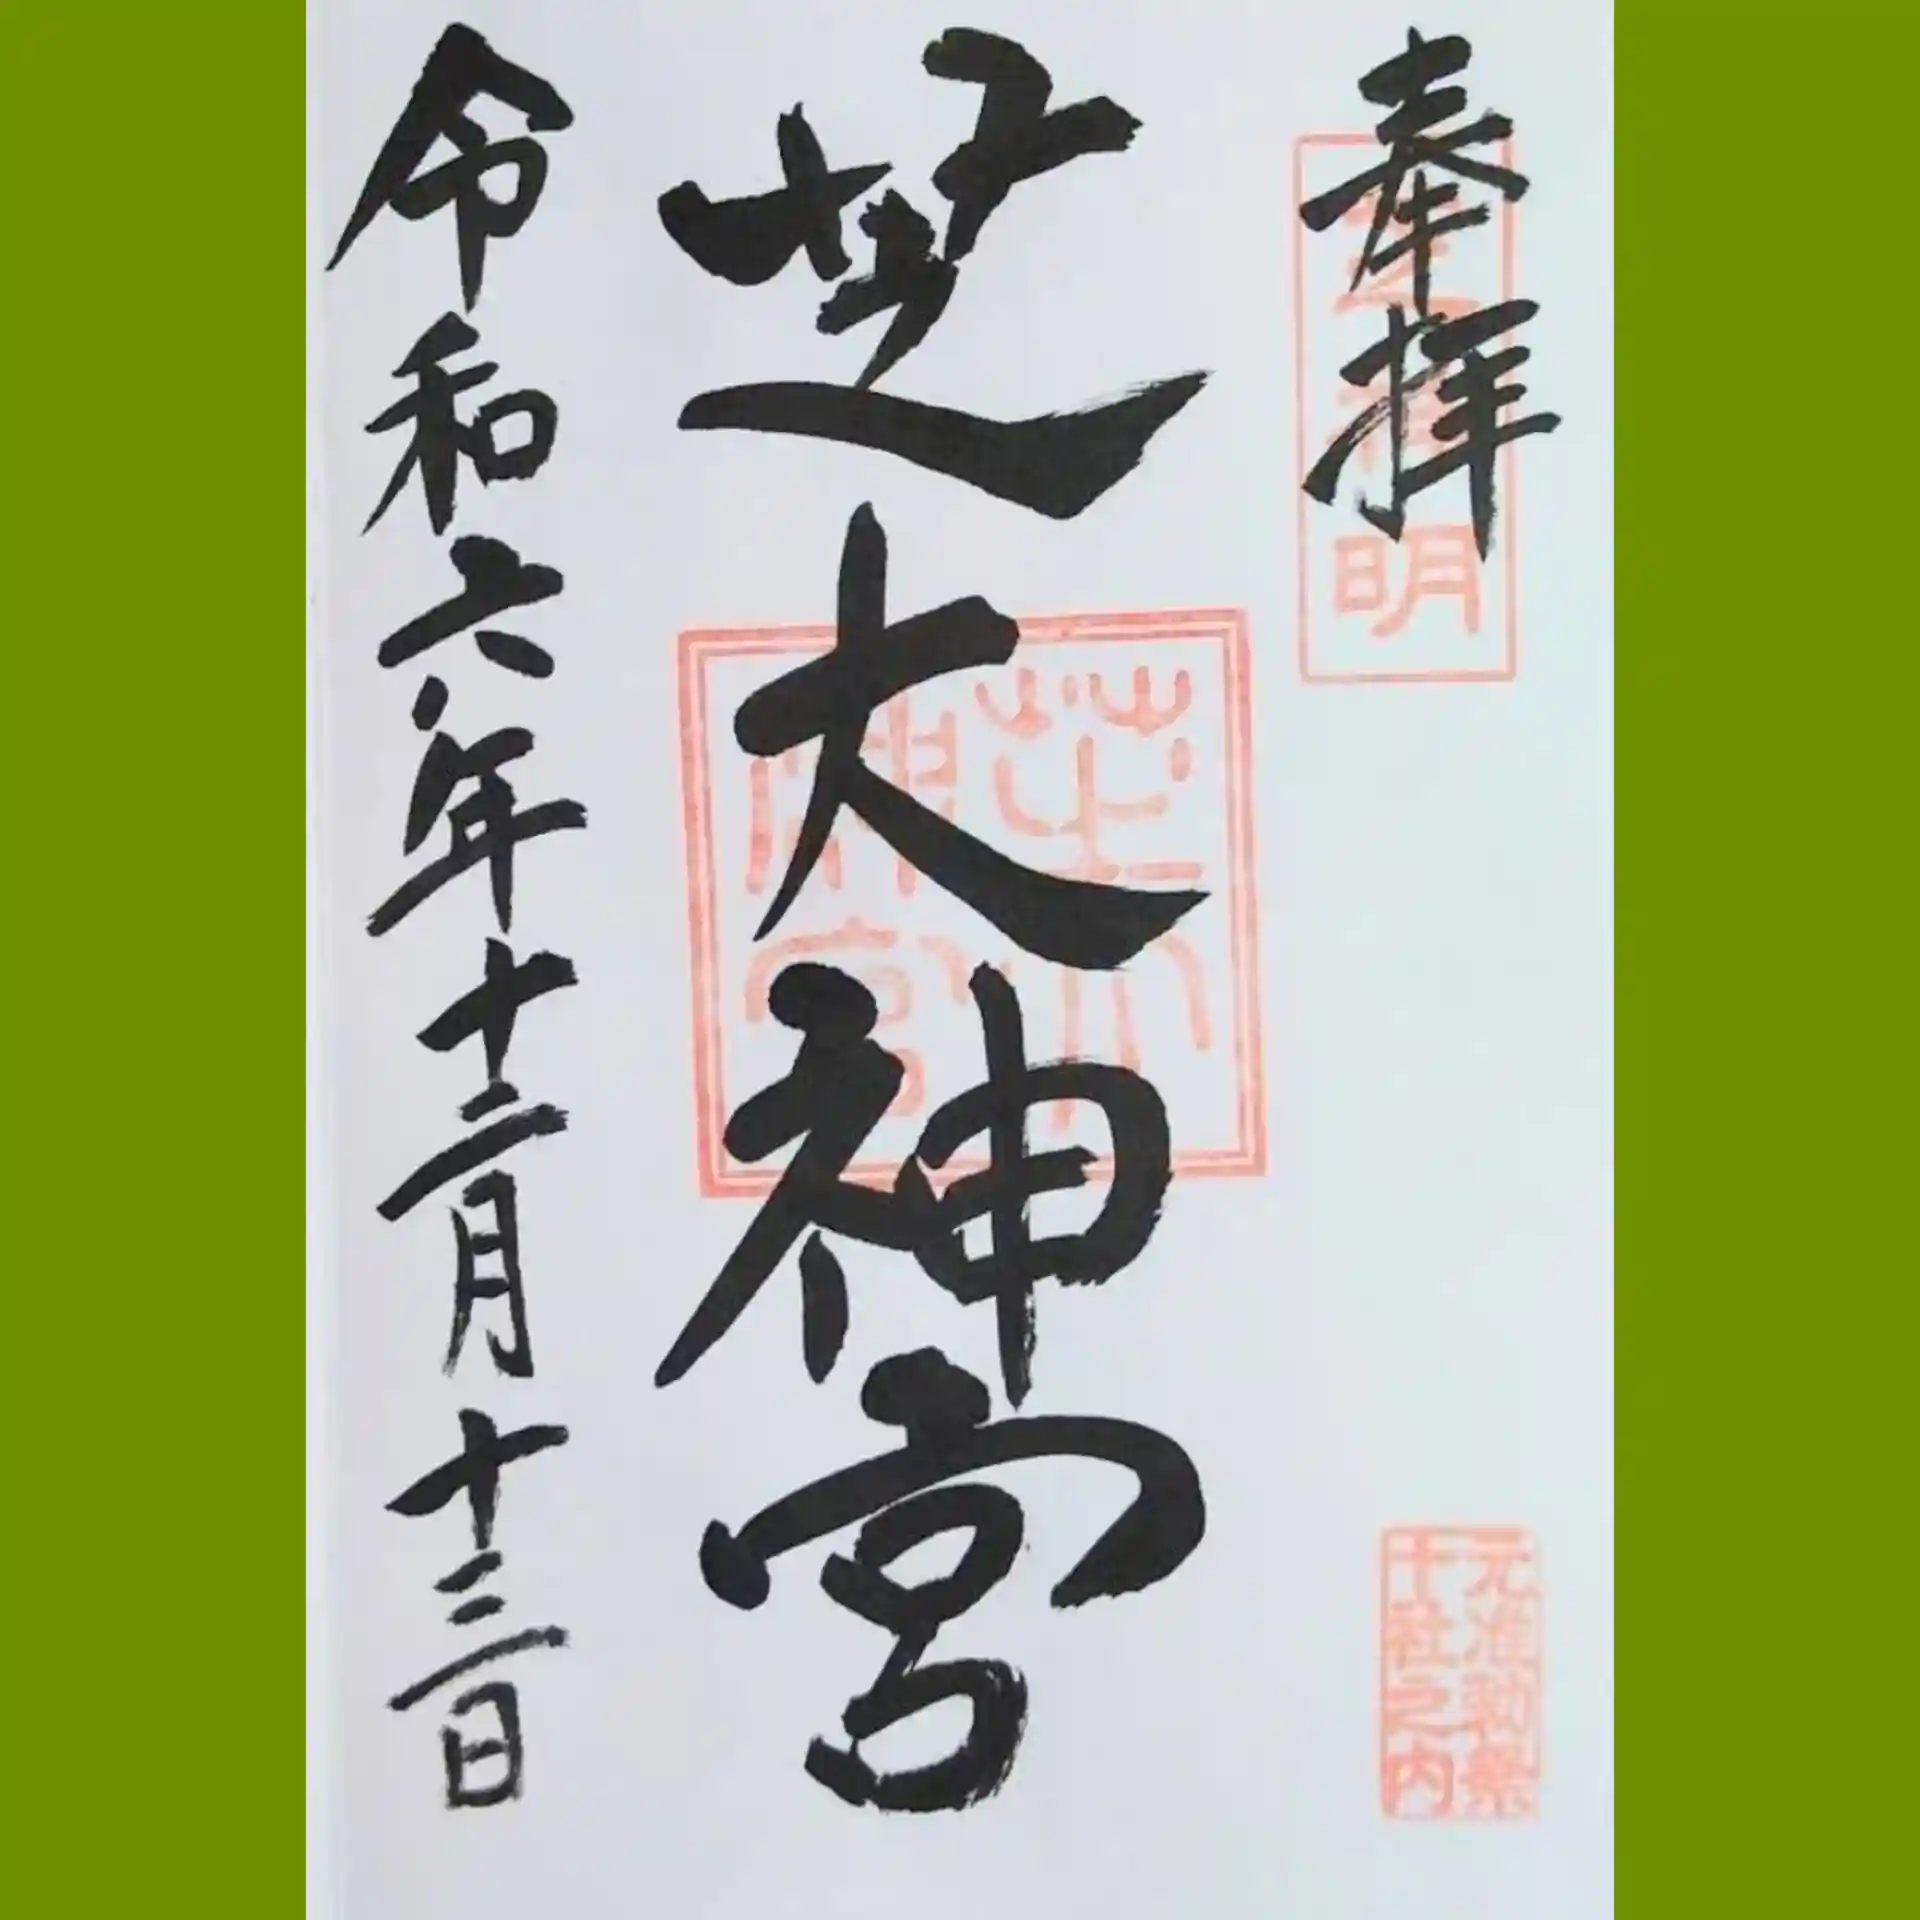 奉拝
芝神明
芝大神宮
芝大神宮
令和六年十二月十三日
元准勅祭
十社之内